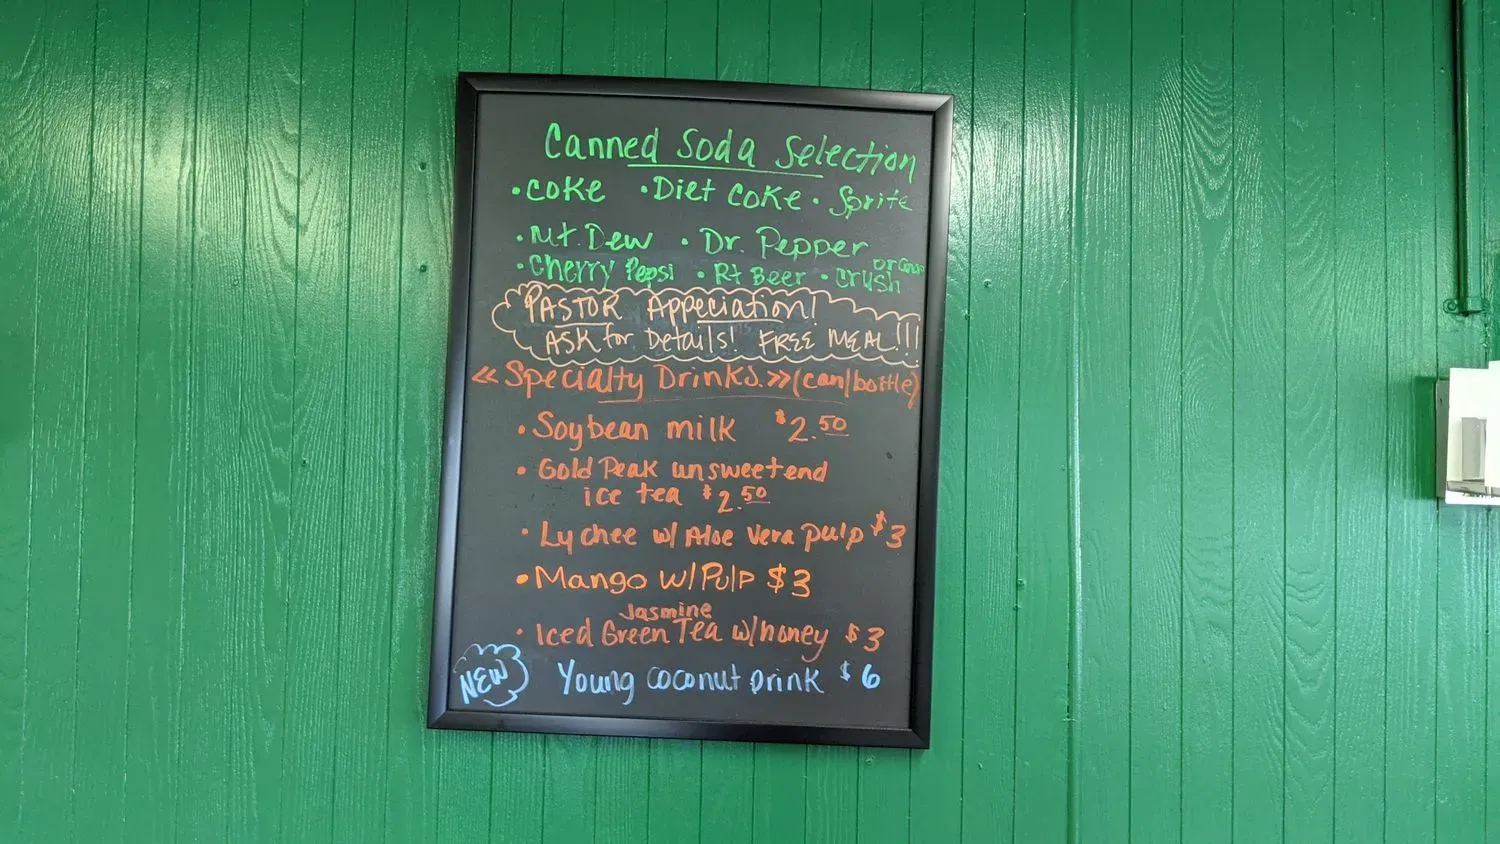 Canned Soda Selection
• Coke • Diet Coke • Sprite
• Mt. Dew • Dr. Pepper
• Cherry Pepsi • Rt Beer • Crush
PASTOR Appeciation!
ASK for Details! FREE MEAL!!!
« Specialty Drinks. » (can/bottle)
• Soybean milk $2.50
• Gold Peak unsweetend
ice tea $2.50
• Lychee w/ Aloe Vera pulp $3
• Mango w/ Pulp $3
Jasmine
• Iced Green Tea w/honey $3
NEW Young coconut Drink $6